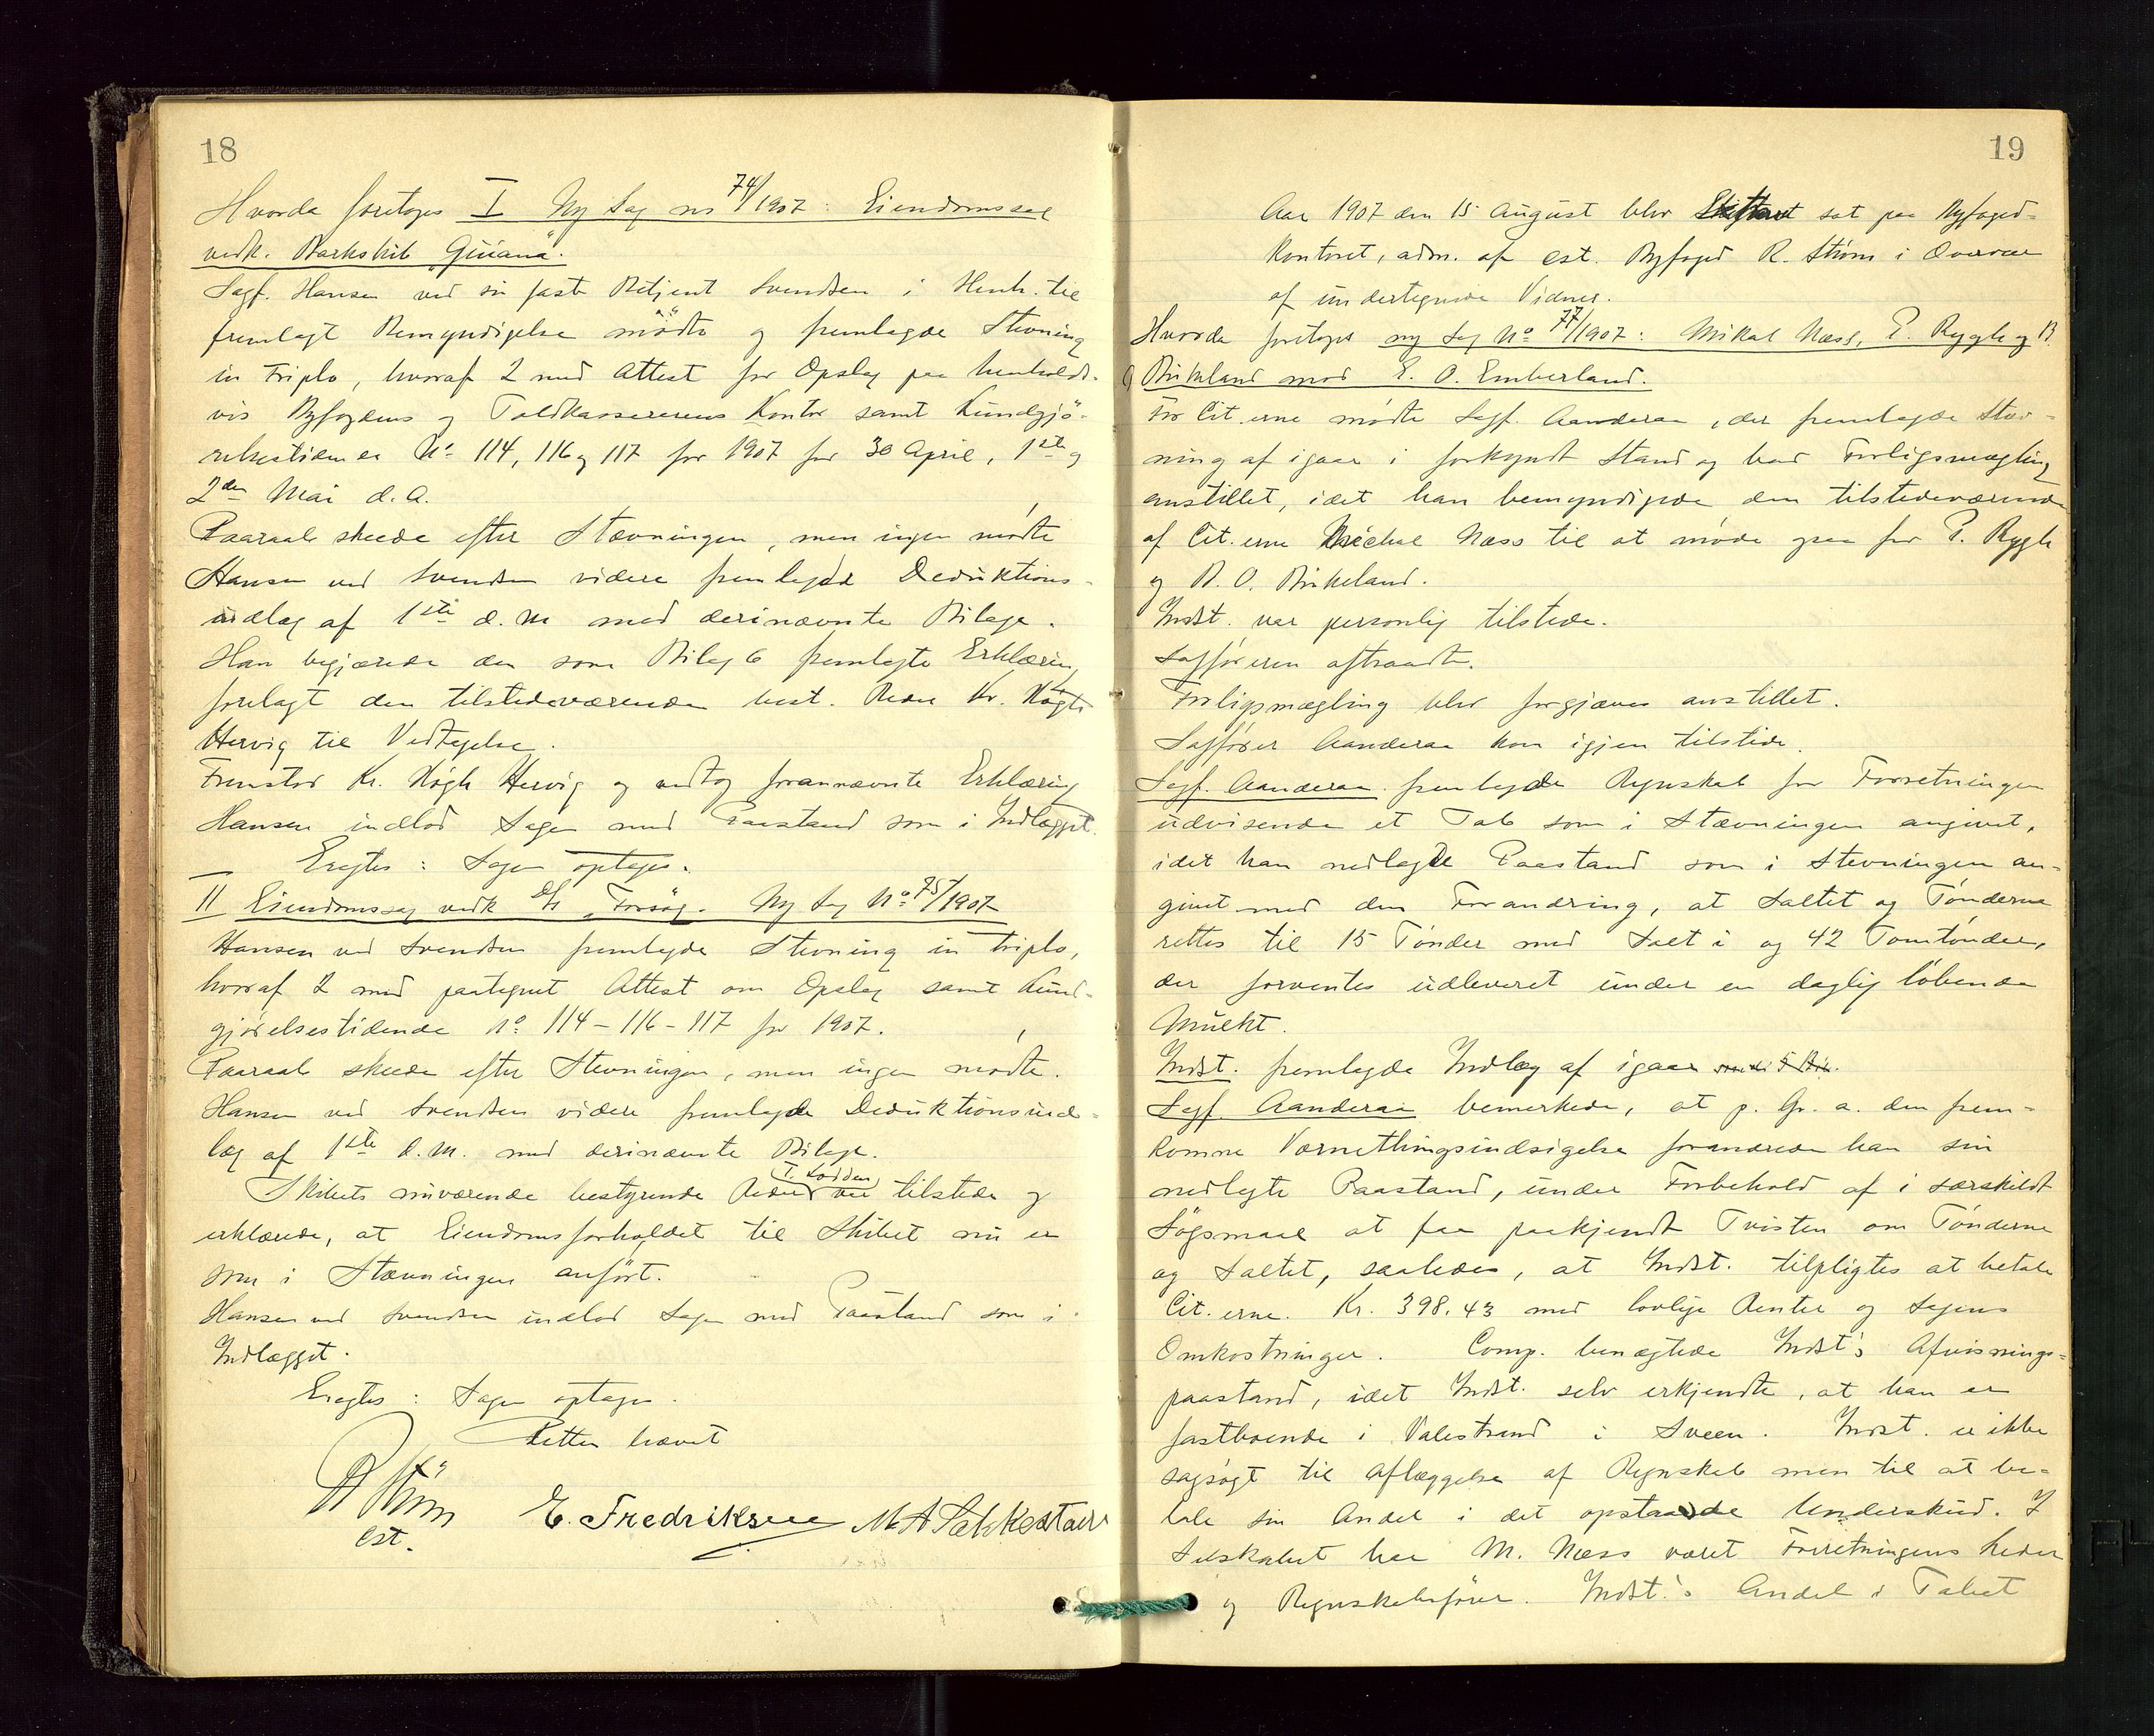 18
Hvorda foretoges I Ny Sag no 74/1907: Eiendomssag
vedk. Barkskib "Guiana".
Sagf. Hansen ved sin faste Betjent Svendsen i Henh. til
fremlagt Bemyndigelse mødte og fremlagde Stevning
in triplo, hvoraf 2 med Attest for Opslag paa henholds-
vis Byfogdens og Toldkassererens Kontor samt Kundgjø-
relsestidende No 114, 116 og 117 for 1907 for 30 April, 1ste og
2den Mai d.A.
Paaraab skeede efter Stævningen, men ingen mødte
Hansen ved Svendsen videre fremlagde Deduktions-
indlæg af 1ste d.M. med derinævnte Bilage.
Han begjærede den som Bilag 6 fremlagte Erklæring
forelagt den tilstedeværende best. Reder Kr. Høgh
Hervig til Vedtagelse.
Fremstod Kr. Høgh Hervig og vedtog forannævnte Erklæring
Hansen indlod Sagen med Paastand som i Indlægget.
Eragtes: Sagen optages.
II Eiendomssag vedk D/S "Forsøg". Ny Sag No 75/1907
Hansen ved Svendsen fremlagde Stevning in triplo,
hvoraf 2 med paategnet Attest om Opslag samt Kund-
gjørelsestidende No 114-116-117 for 1907.
Paaraab skeede efter Stevningen, men ingen mødte.
Hansen ved Svendsen videre fremlagde Deduktionsind-
læg af 1ste d.M. med derinævnte Bilage.
Skibets nuværende bestyrende Reder T. Lodden var tilstede og
erklærede, at Eiendomsforholdet til Skibet nu er
som i Stævningen anført.
Hansen ved Svendsen indlod Sagen med Paastand som i
Indlægget.
Eragtes: Sagen optages.
Retten hævet
R Strøm
cst.
E. Fredriksen M A Sakkestad
19
Aar 1907 den 15 August blev sat paa Byfoged-
kontoret, adm. af cst. Byfoged R. Strøm i Overvær
af undertegnede Vidner.
Hvorda foretoges ny Sag No 77/1907: Mikal Næss, P. Rygh og B.
O Birkeland mod E. O. Emberland.
For Cit.erne mødte Sagf. Aanderaa, der fremlagde Stæv-
ning af igaar i forkyndt Stand og bad Forligsmægling
anstillet, idet han bemyndigede den tilstedeværende
af Cit.erne Michal Næss til at møde ogsaa for P. Rygh
og B. O. Birkeland.
Indst. var personlig tilstede.
Sagføreren aftraadte.
Forligsmægling blev forgjæves anstillet.
Sagfører Aanderaa kom igjen tilstede.
Sagf. Aanderaa fremlagde Regnskab for Forretningen
udvisende et Tab som i Stævningen angivet,
idet han nedlagde Paastand som i Stevningen an-
givet med den Forandring, at Saltet og Tønderne
rettes til 15 Tønder med Salt i og 42 Tomtønder,
der forventes udleveret under en daglig løbende
Mulkt.
Indst. fremlagde Indlæg af igaar
Sagf. Aanderaa bemerkede, at p. Gr. a. den frem-
komne Værnethingsindsigelse forandrede han sin
nedlagte Paastand, under Forbehold af i særskildt
Søgsmaal at faa paakjendt Tvisten om Tønderne
og Saltet, saaledes, at Indst. tilpligtes at betale
Cit.erne. Kr. 398.43 med lovlige Renter og Sagens
Omkostninger. Comp. benægtede Indst's Afvisnings-
paastand, idet Indst. selv erkjendte, at han er
fastboende i Valestrand i Sveen. Indst. er ikke
sagsøgt til Aflæggelse af Regnskab men til at be-
tale sin Andel i det opstaaede Underskud. I
Selskabet har M. Næss været Forretningens Leder
og Regnskabsfører. Indst.'s Andel i Tabet